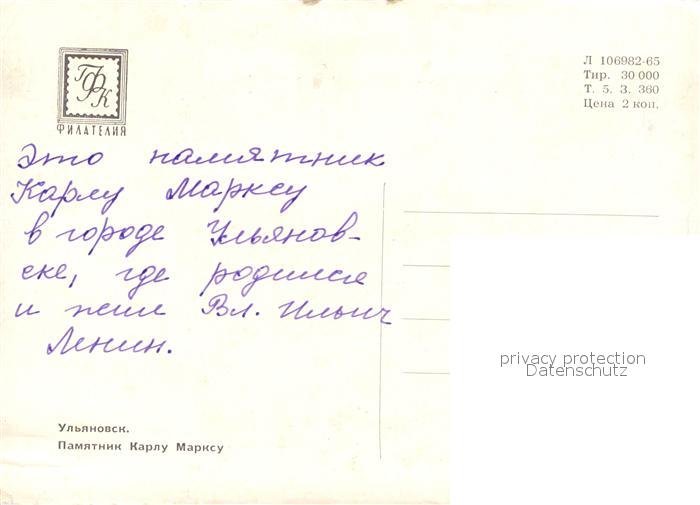 ГФК
ФИЛАТЕЛИЯ
Л 106982-65
Тир. 30 000
Т. 5. 3. 360
Цена 2 коп.
Это памятник
Карлу Марксу
в городе Ульянов-
ске, где родился
и жил Вл. Ильич
Ленин.
privacy protection
Datenschutz
Ульяновск.
Памятник Карлу Марксу